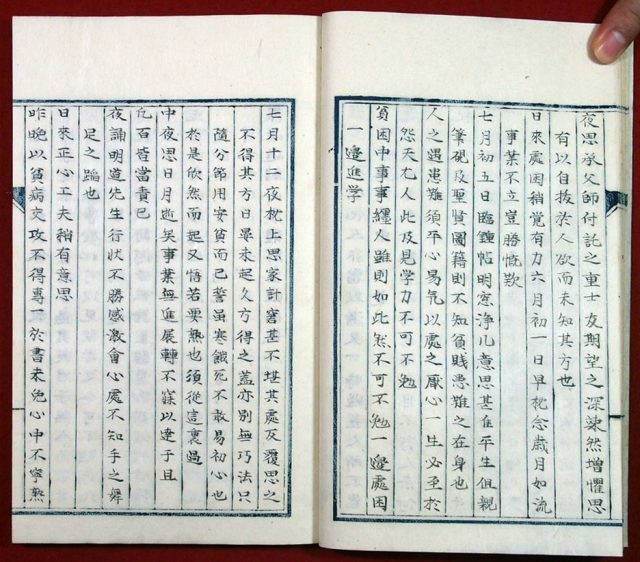 夜思承父師付託之重士友期望之深竦然增懼思
有以自拔於人欲而未知其方也
日來處困稍覺有力六月初一日早枕念歲月如流
事業不立豈勝慨歎
七月初五日臨鍾帖明窓淨几意思甚佳平生但親
筆硯及聖賢圖籍則不知貧賤患難之在身也
人之遇患難須平心易氣以處之厭心一生必至於
怨天尤人此乃見學力不可不勉
貧困中事事纏人雖則如此然不可不勉一邊處困
一邊進學
七月十二夜枕上思家計窘甚不堪其處反覆思之
不得其方日晏未起久方得之蓋亦別無巧法只
隨分節用安貧而已誓雖寒餓死不敢易初心也
於是欣然而起又悟若要熟也須從這裏過
中夜思日月逝矣事業無進展轉不寐以達于旦
凡百皆當責己
夜誦明道先生行狀不勝感激會心處不知手之舞
足之蹈也
日來正心工夫稍有意思
昨晚以貧病交攻不得專一於書未免心中不寧熟